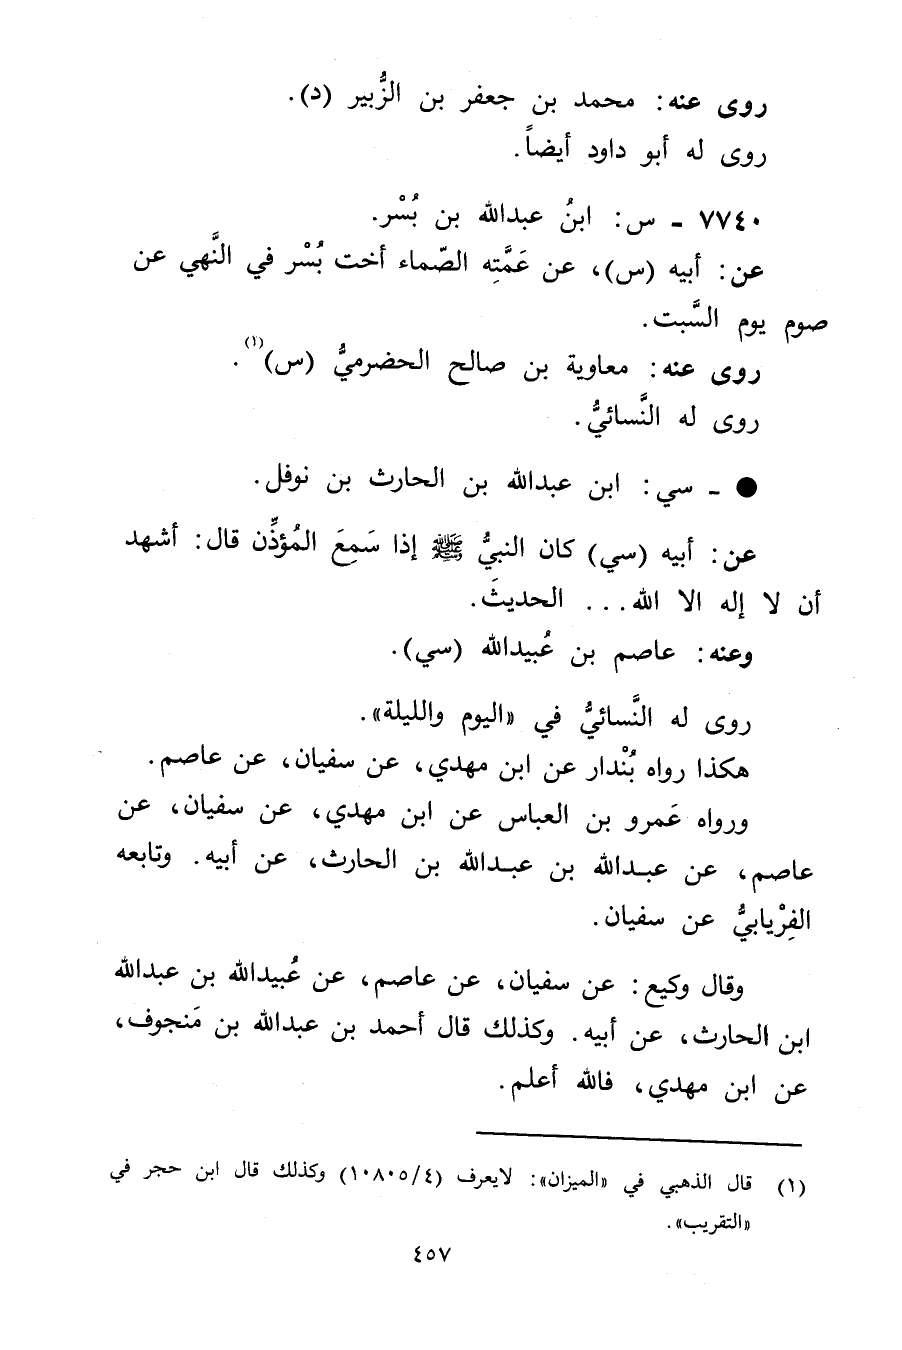 روى عنه: محمد بن جعفر بن الزُّبير (د).
روى له أبو داود أيضاً.
٧٧٤٠ - س: ابنُ عبدالله بن بُسْر.
عن: أبيه (س)، عن عَمَّتِه الصّماء أخت بُسْر في النَّهي عن
صوم يوم السَّبت.
روى عنه: معاوية بن صالح الحضرميُّ (س)(١).
روى له النَّسائيُّ.
● - سي: ابن عبدالله بن الحارث بن نوفل.
عن: أبيه (سي) كان النبيُّ ﷺ إذا سَمِعَ المُؤذِّن قال: أشهد
أن لا إله الا الله... الحديثَ.
وعنه: عاصم بن عُبيدالله (سي).
روى له النَّسائيُّ في «اليوم والليلة».
هكذا رواه بُنْدار عن ابن مهدي، عن سفيان، عن عاصم.
ورواه عَمرو بن العباس عن ابن مهدي، عن سفيان، عن
عاصم، عن عبدالله بن عبدالله بن الحارث، عن أبيه. وتابعه
الفِرْيابيُّ عن سفيان.
وقال وكيع: عن سفيان، عن عاصم، عن عُبيدالله بن عبدالله
ابن الحارث، عن أبيه. وكذلك قال أحمد بن عبدالله بن مَنجوف،
عن ابن مهدي، فالله أعلم.
(١) قال الذهبي في «الميزان»: لايعرف (٤/١٠٨٠٥) وكذلك قال ابن حجر في
«التقريب».
٤٥٧